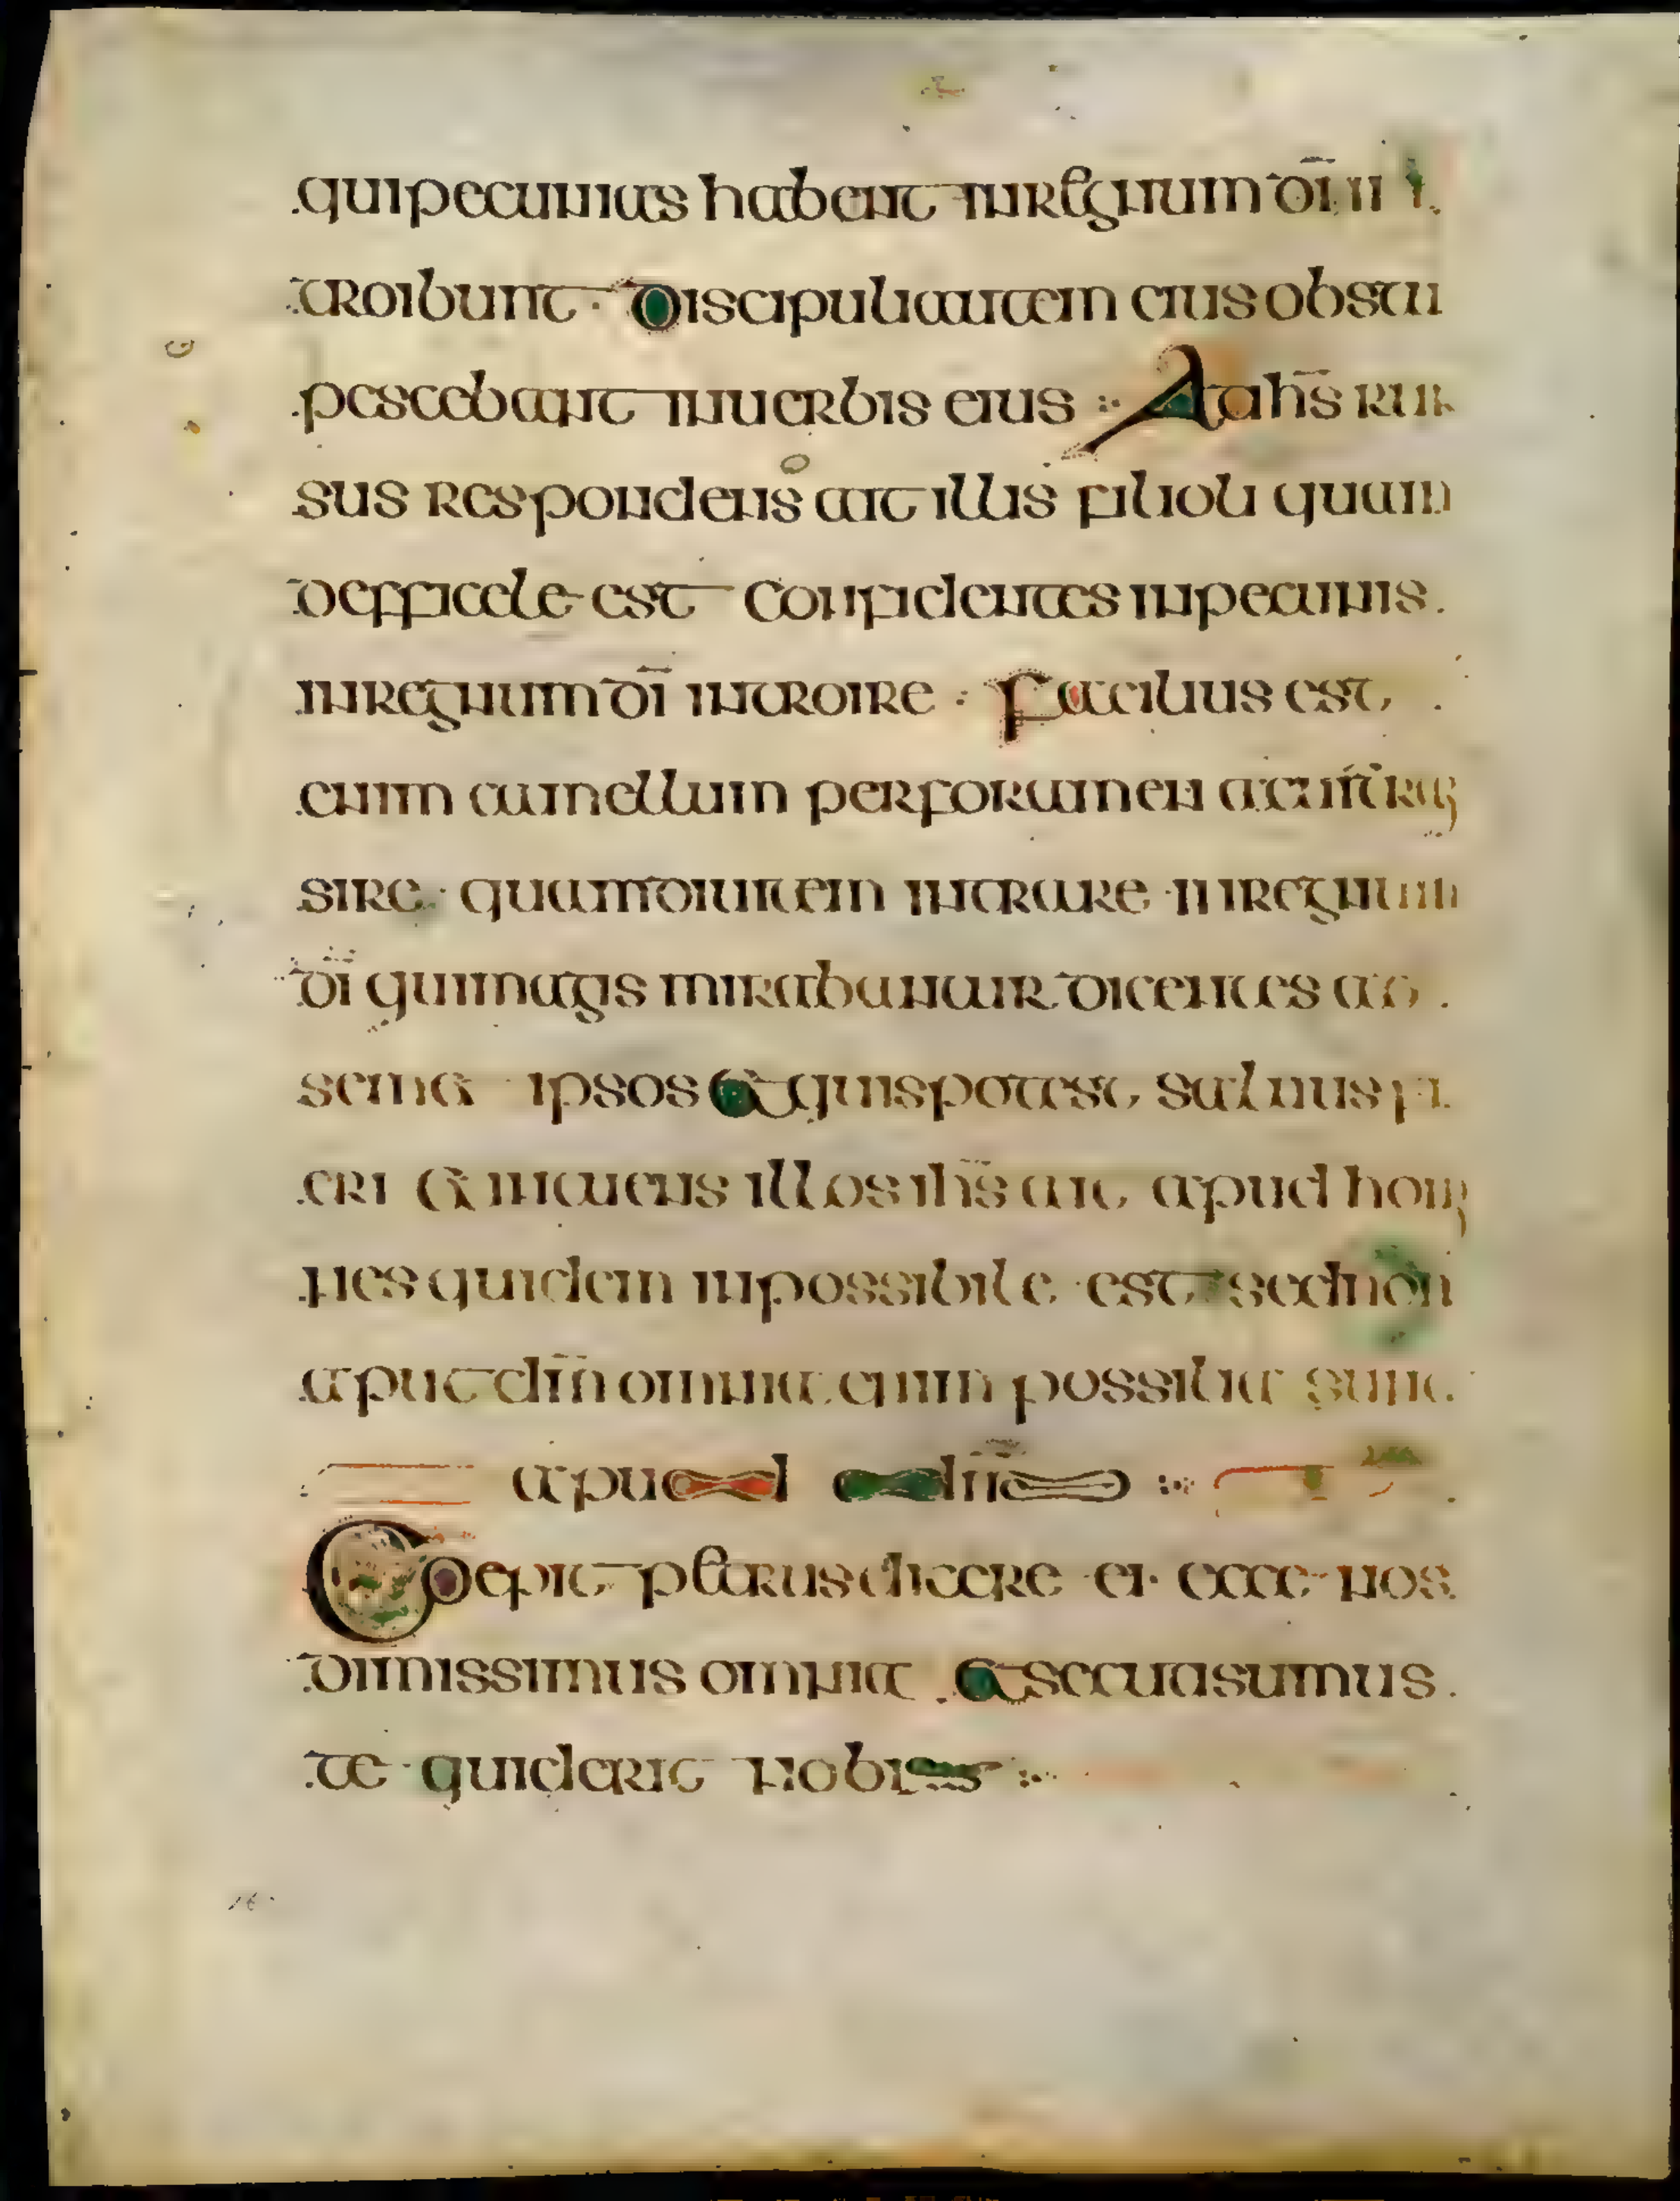 qui pecunias habent in regnum dī in
troibunt · Discipuli autem eius obstu
pescebant in uerbis eius :· At ihs̄ rur
sus respondens ait illis filioli quam
defficele est confidentes in pecunis.
in regnum dī introire · Facilius est
enim camellum per foramen acus tran
sire · quam diuitem intrare in regnum
dī qui magis mirabantur dicentes ad
semet ipsos et quis potest saluus fi
eri et intuens illos ihs̄ ait apud homi
nes quidem inpossibile est sed non
aput dm̄ omnia enim possibilia sunt
apud dm̄ :·
Coepit petrus dicere ei · ecce nos
dimissimus omnia et secuti sumus
te · quid erit nobis :·